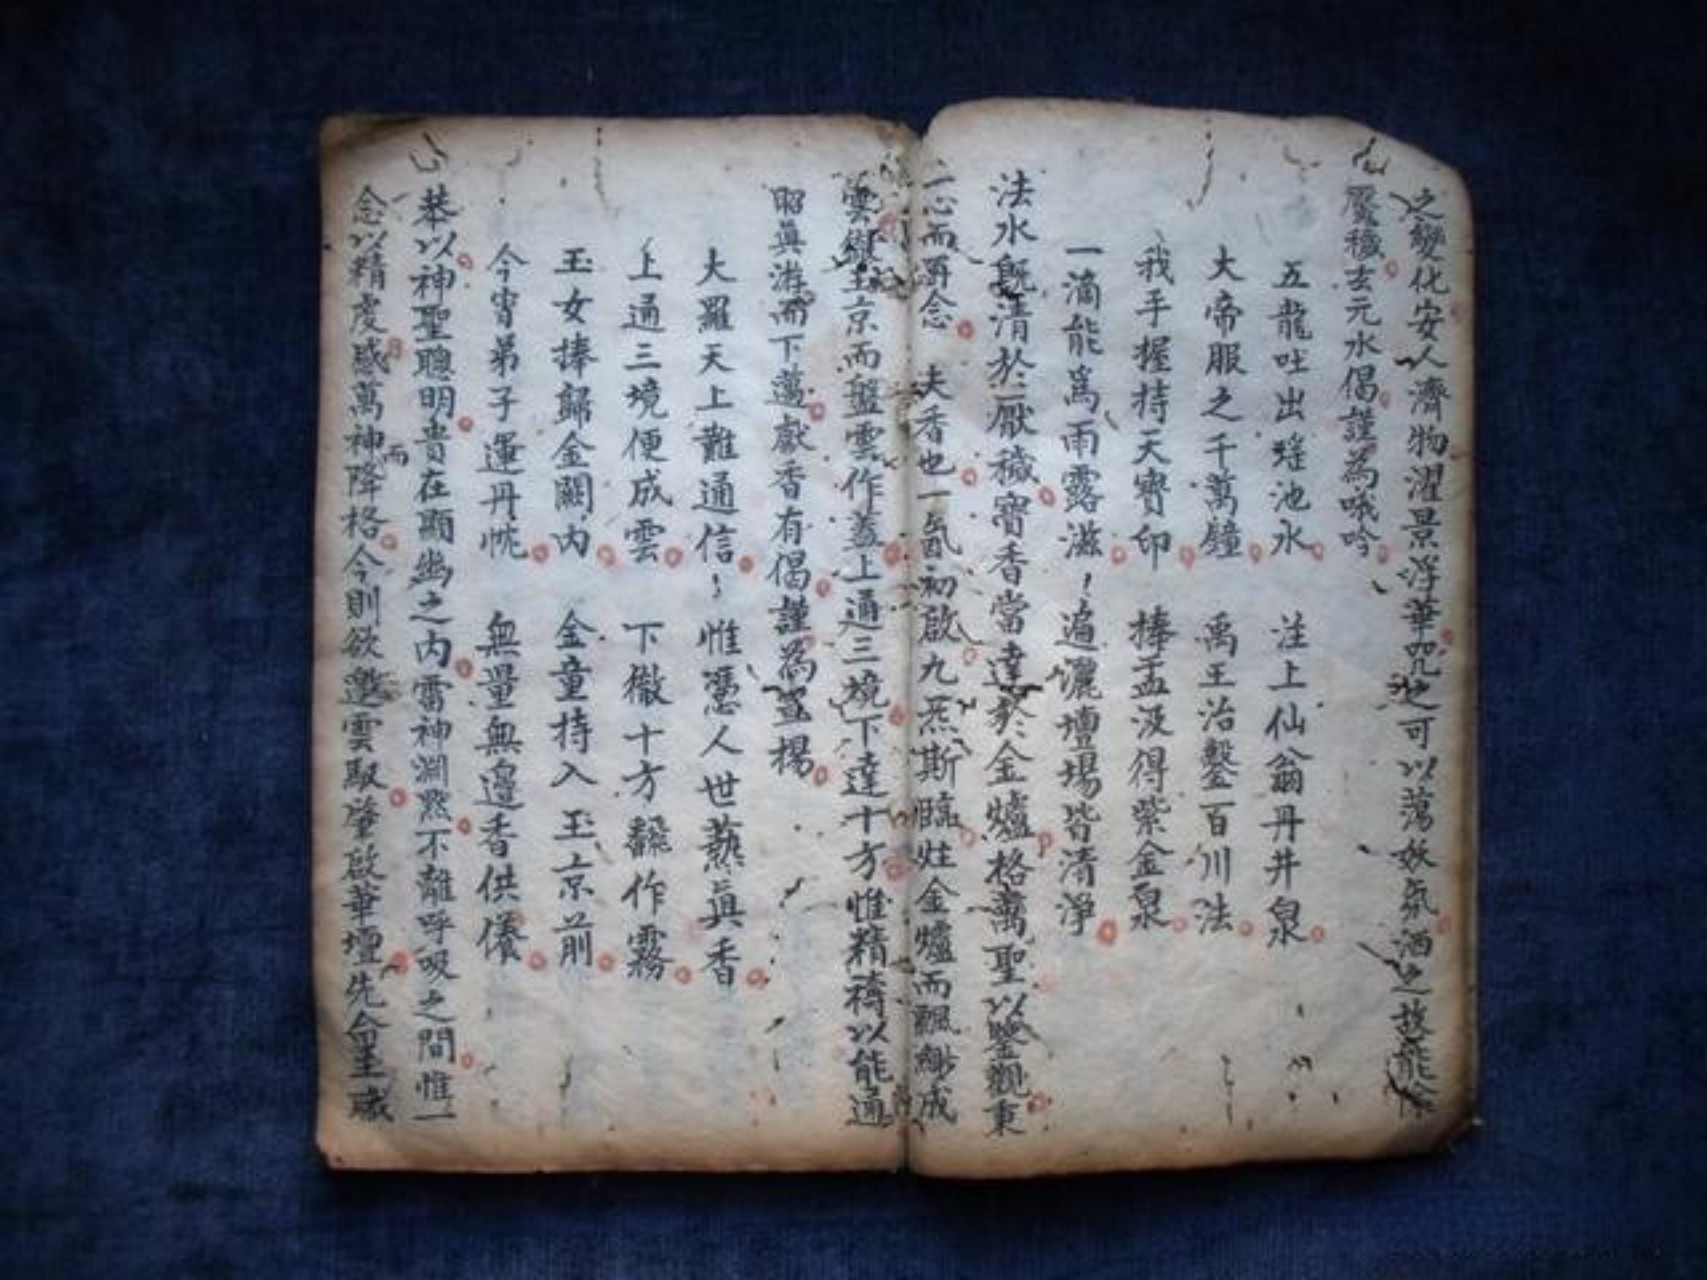 之變化安人濟物濯景浮華咒之可以蕩妖氛洒之故能除
厭穢去元水偈謹為哦吟
五龍吐出瑤池水 注上仙翁丹井泉
大帝服之千萬鐘 禹王治鑿百川法
我手握持天寶印 捧盂汲得紫金泉
一滴能爲雨露滋 遍灑壇場皆清淨
法水旣清於厭穢寶香當達於金爐格萬聖以鑒觀秉
一心而爵念 夫香也一氣初啟九炁斯臨炷金爐而飄緲成
雲 玉京而盤雲作蓋上通三境下達十方惟精禱以能通
昭眞游而下邁獻香有偈謹爲宣揚
大羅天上難通信 惟憑人世爇眞香
上通三境便成雲 下徹十方飜作霧
玉女捧歸金闕內 金童持入玉京前
今宵弟子運丹忱 無量無邊香供養
恭以神聖聰明貴在顯幽之內雷神淵默不離呼吸之間惟一
念以精虔感萬神而降格今則欲邀雲馭肇啟華壇先命主職